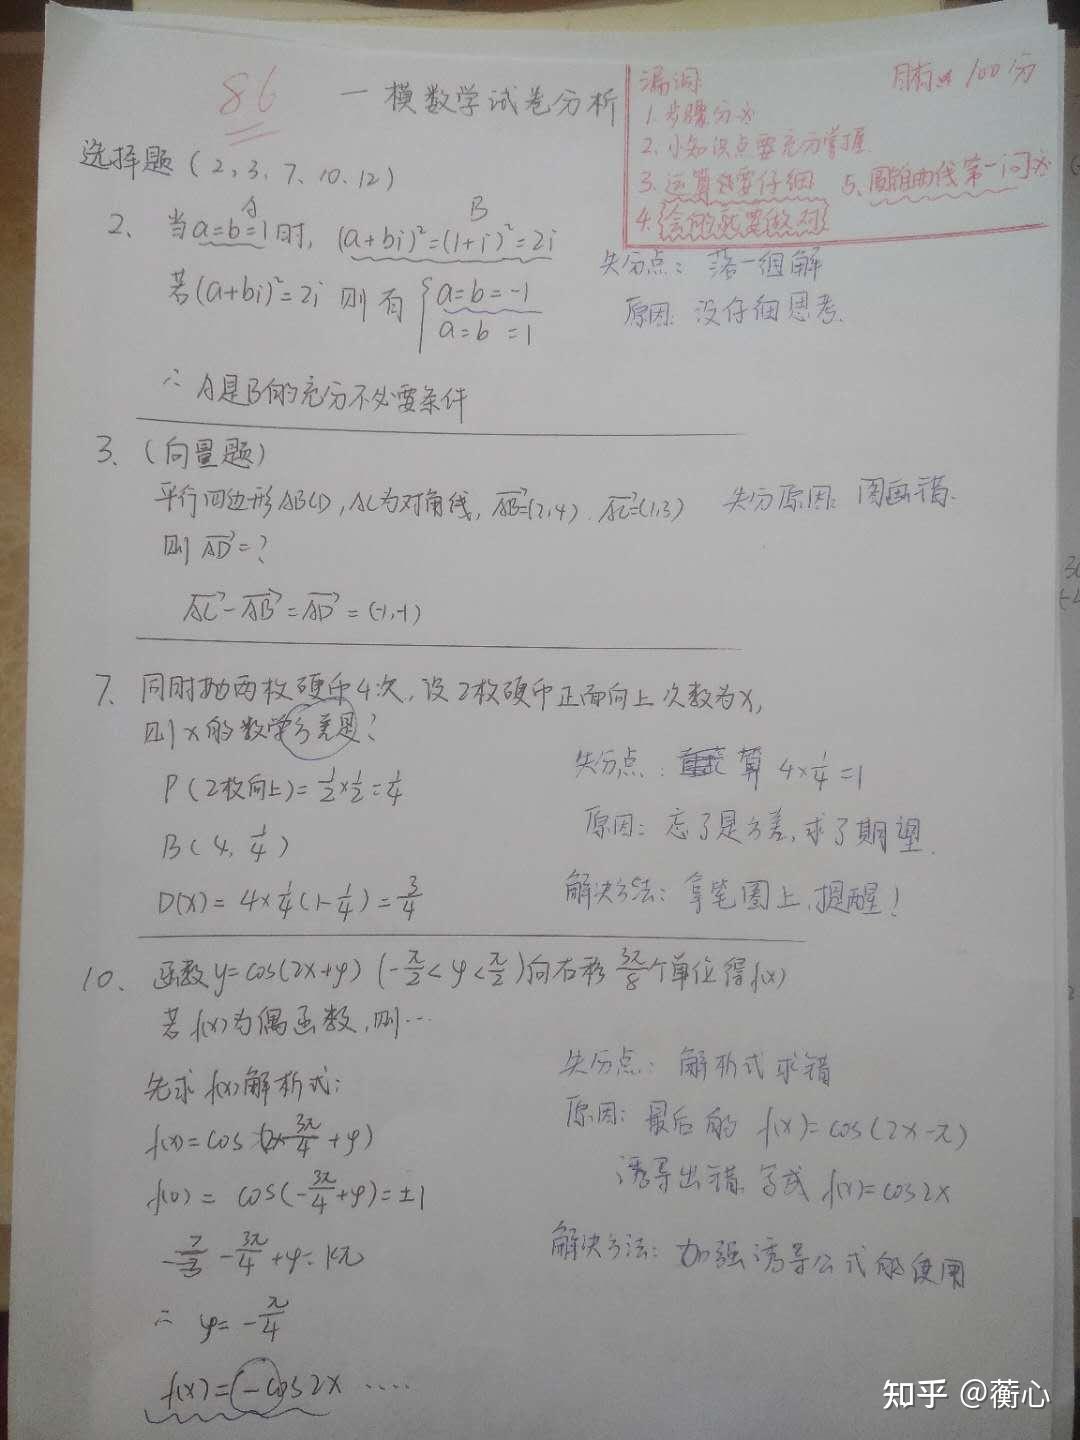 86
一模数学试卷分析
漏洞
目标 100分
1. 步骤分
2. 小知识点要充分掌握
3. 运算要仔细
5. 圆锥曲线第一问
4. 会的就要做对
选择题(2、3、7、10、12)
A B
2、当a=b=1时, (a+bi)²=(1+i)²=2i
若(a+bi)²=2i 则有 { a=b=-1
a=b=1
失分点：落一组解
原因：没仔细思考.
∴ A是B的充分不必要条件
3、(向量题)
平行四边形ABCD, AC为对角线, AB→=(2,4). AC→=(1,3)
则 AD→=?
失分原因：图画错.
AC→-AB→=AD→=(-1,-1)
7、同时抛两枚硬币4次, 设2枚硬币正面向上次数为X,
则X的数学方差是?
P(2枚向上)=1/2×1/2=1/4
B(4, 1/4)
D(X)=4×1/4(1-1/4)=3/4
失分点：算 4×1/4=1
原因：忘了是方差,求了期望.
解决方法：拿笔圈上,提醒!
10、函数y=cos(2x+φ) (-π/2<φ<π/2)向右移3π/8个单位得f(x)
若f(x)为偶函数,则…
先求f(x)解析式:
f(x)=cos(2x-3π/4+φ)
f(0)=cos(-3π/4+φ)=±1
-3π/4+φ=kπ
∴ φ=-π/4
f(x)=-cos2x ....
失分点：解析式求错
原因：最后的 f(x)=cos(2x-π)
诱导出错 写成 f(x)=cos2x
解决方法：加强诱导公式的使用
知乎 @蘅心